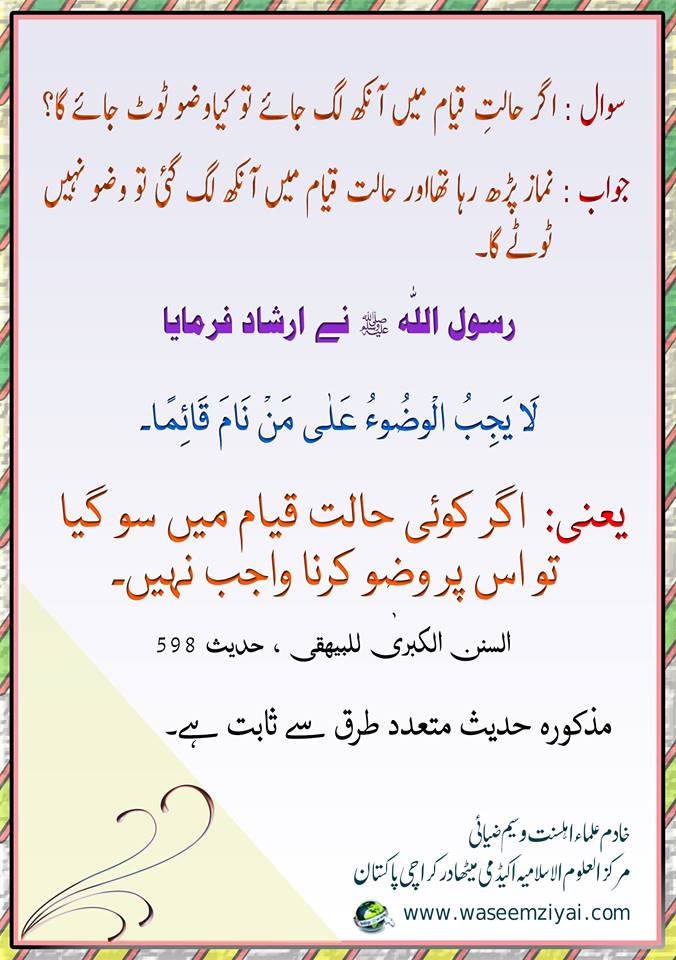 سوال : اگر حالتِ قیام میں آنکھ لگ جائے تو کیاوضو ٹوٹ جائے گا؟
جواب : نماز پڑھ رہا تھااور حالت قیام میں آنکھ لگ گئی تو وضو نہیں
ٹوٹے گا۔
رسول اللہ ﷺ نے ارشاد فرمایا
لَا یَجِبُ الْوضُوءُ عَلٰی مَنْ نَامَ قَائِمًا۔
یعنی: اگر کوئی حالت قیام میں سو گیا
تو اس پر وضو کرنا واجب نہیں۔
السنن الکبریٰ للبیھقی ، حدیث 598
مذکورہ حدیث متعدد طرق سے ثابت ہے۔
خادم علماء اہلسنت وسیم ضیائی
مرکز العلوم الاسلامیہ اکیڈمی میٹھادر کراچی پاکستان
www.waseemziyai.com